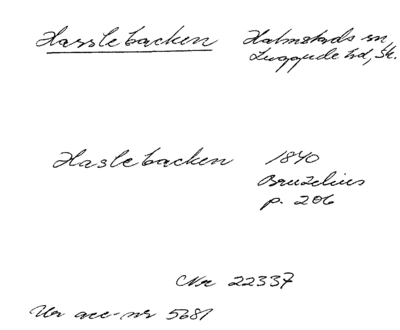 Hasslebacken Halmstads sn,
Luggude hd, Sk.
Haslebacken 1840
Bruzelius
p. 206
Nr 22337
Ur acc-nr 5681